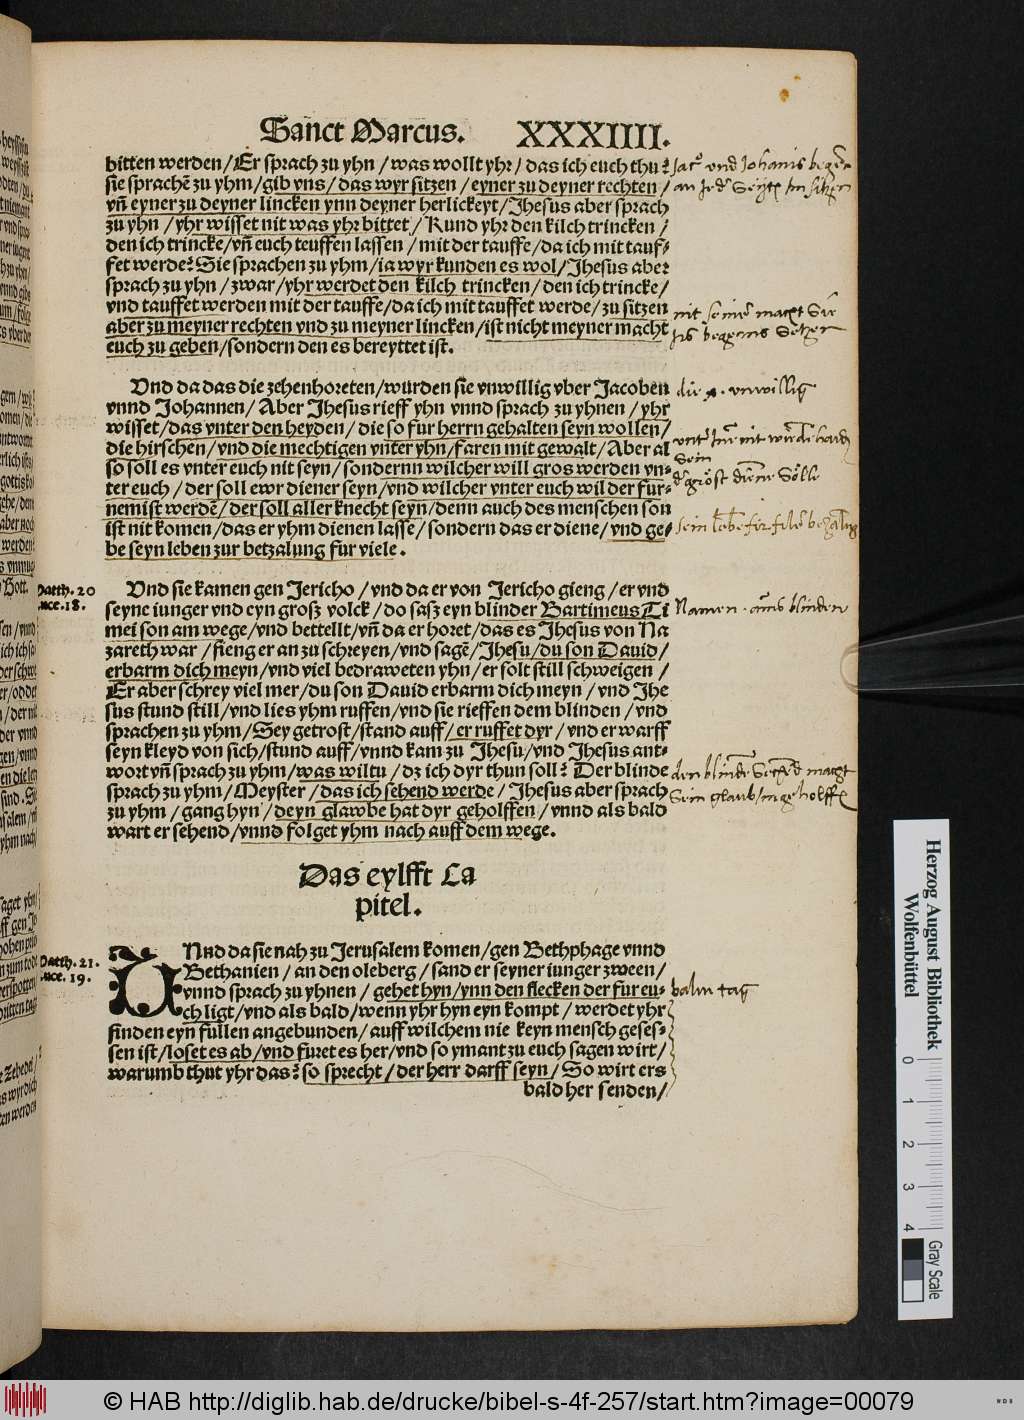 Sanct Marcus. XXXIIII.
bitten werden / Er sprach zu yhn / was wollt yhr / das ich euch thu?
sie sprachē zu yhm / gib vns / das wyr sitzen / eyner zu deyner rechten /
vñ eyner zu deyner lincken ynn deyner herlickeyt / Jhesus aber sprach
zu yhn / yhr wisset nit was yhr bittet / Kund yhr den kilch trincken /
den ich trincke / vñ euch teuffen lassen / mit der tauffe / da ich mit tauf-
fet werde? Sie sprachen zu yhm / ia wyr kunden es wol / Jhesus aber
sprach zu yhn / zwar / yhr werdet den kilch trincken / den ich trincke /
vnd tauffet werden mit der tauffe / da ich mit tauffet werde / zu sitzen
aber zu meyner rechten vnd zu meyner lincken / ist nicht meyner macht
euch zu geben / sondern den es bereyttet ist.
Vnd da das die zehenhoreten / wurden sie vnwillig vber Jacoben
vnnd Johannen / Aber Jhesus rieff yhn vnnd sprach zu yhnen / yhr
wisset / das vnter den heyden / die so fur herrn gehalten seyn wollen /
die hirschen / vnd die mechtigen vnter yhn / faren mit gewalt / Aber al
so soll es vnter euch nit seyn / sondernn wilcher will gros werden vn-
ter euch / der soll ewr diener seyn / vnd wilcher vnter euch wil der fur-
nemist werdē / der soll aller knecht seyn / denn auch des menschen son
ist nit komen / das er yhm dienen lassē / sondern das er diene / vnd ge-
be seyn leben zur betzalung fur viele.
Matth. 20
Luce. 18.
Vnd sie kamen gen Jericho / vnd da er von Jericho gieng / er vnd
seyne iunger vnd eyn grosz volck / do sasz eyn blinder Bartimeus Ti
mei son am wege / vnd bettellt / vñ da er horet / das es Jhesus von Na
zareth war / fieng er an zu schreyen / vnd sagē / Jhesu / du son Dauid /
erbarm dich meyn / vnd viel bedraweten yhn / er solt still schweigen /
Er aber schrey viel mer / du son Dauid erbarm dich meyn / vnd Jhe
sus stund still / vnd lies yhm ruffen / vnd sie rieffen dem blinden / vnd
sprachen zu yhm / Sey getrost / stand auff / er ruffet dyr / vnd er warff
seyn kleyd von sich / stund auff / vnnd kam zu Jhesu / vnd Jhesus ant-
wort vñ sprach zu yhm / was wiltu / dz ich dyr thun soll? Der blinde
sprach zu yhm / Meyster / das ich sehend werde / Jhesus aber sprach
zu yhm / gang hyn / deyn glawbe hat dyr geholffen / vnnd als bald
wart er sehend / vnnd folget yhm nach auff dem wege.
Das eylfft Ca
pitel.
Matth. 21.
Luce. 19.
VNnd da sie nah zu Jerusalem komen / gen Bethphage vnnd
Bethanien / an den oleberg / sand er seyner iunger zween /
vnnd sprach zu yhnen / gehet hyn / ynn den flecken der fur eu-
ch ligt / vnd als bald / wenn yhr hyn eyn kompt / werdet yhr
finden eyn fullen angebunden / auff wilchem nie keyn mensch geses-
sen ist / loset es ab / vnd furet es her / vnd so ymant zu euch sagen wirt /
warumb thut yhr das? so sprecht / der herr darff seyn / So wirt ers
bald her senden /
vnd Johanis
die x. vnwillig
sein
Namen blinden
palm tag
Herzog August Bibliothek
Wolfenbüttel
0 1 2 3 4
Gray Scale
© HAB http://diglib.hab.de/drucke/bibel-s-4f-257/start.htm?image=00079